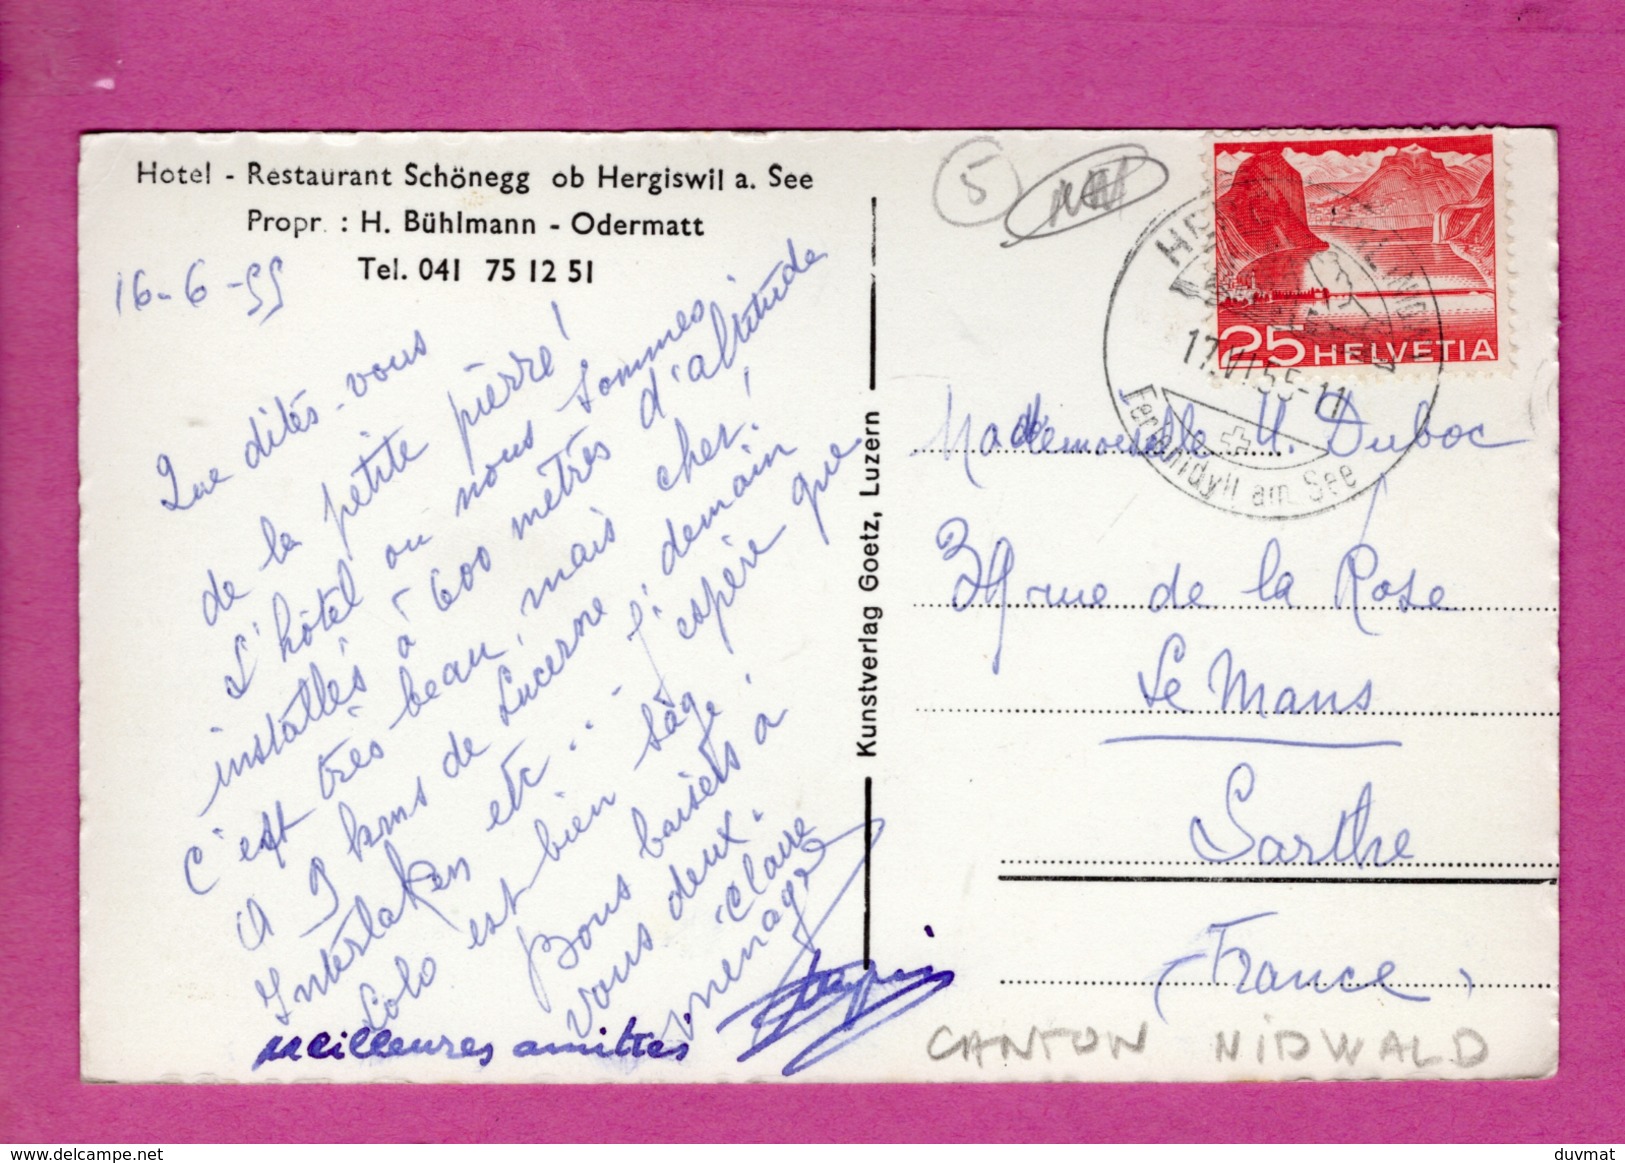 Hotel - Restaurant Schönegg ob Hergiswil a. See
Propr. : H. Bühlmann - Odermatt
Tel. 041 75 12 51
16-6-55
Que dites-vous
de la petite pierre!
L'hôtel ou nous sommes
installés à 600 mètres d'altitude
c'est très beau, mais cher!
A 9 kms de Lucerne. demain
Interlaken etc... j'espère que
Lolo est bien sage.
Bons baisers à
vous deux.
Claire
menage
meilleures amitiés
Kunstverlag Goetz, Luzern
5
25 HELVETIA
17.VI.55-11
Ferienidyll am See
Mademoiselle U. Duboc
39 rue de la Rose
Le Mans
Sarthe
(France)
CANTON NIDWALD
www.delcampe.net
duvmat